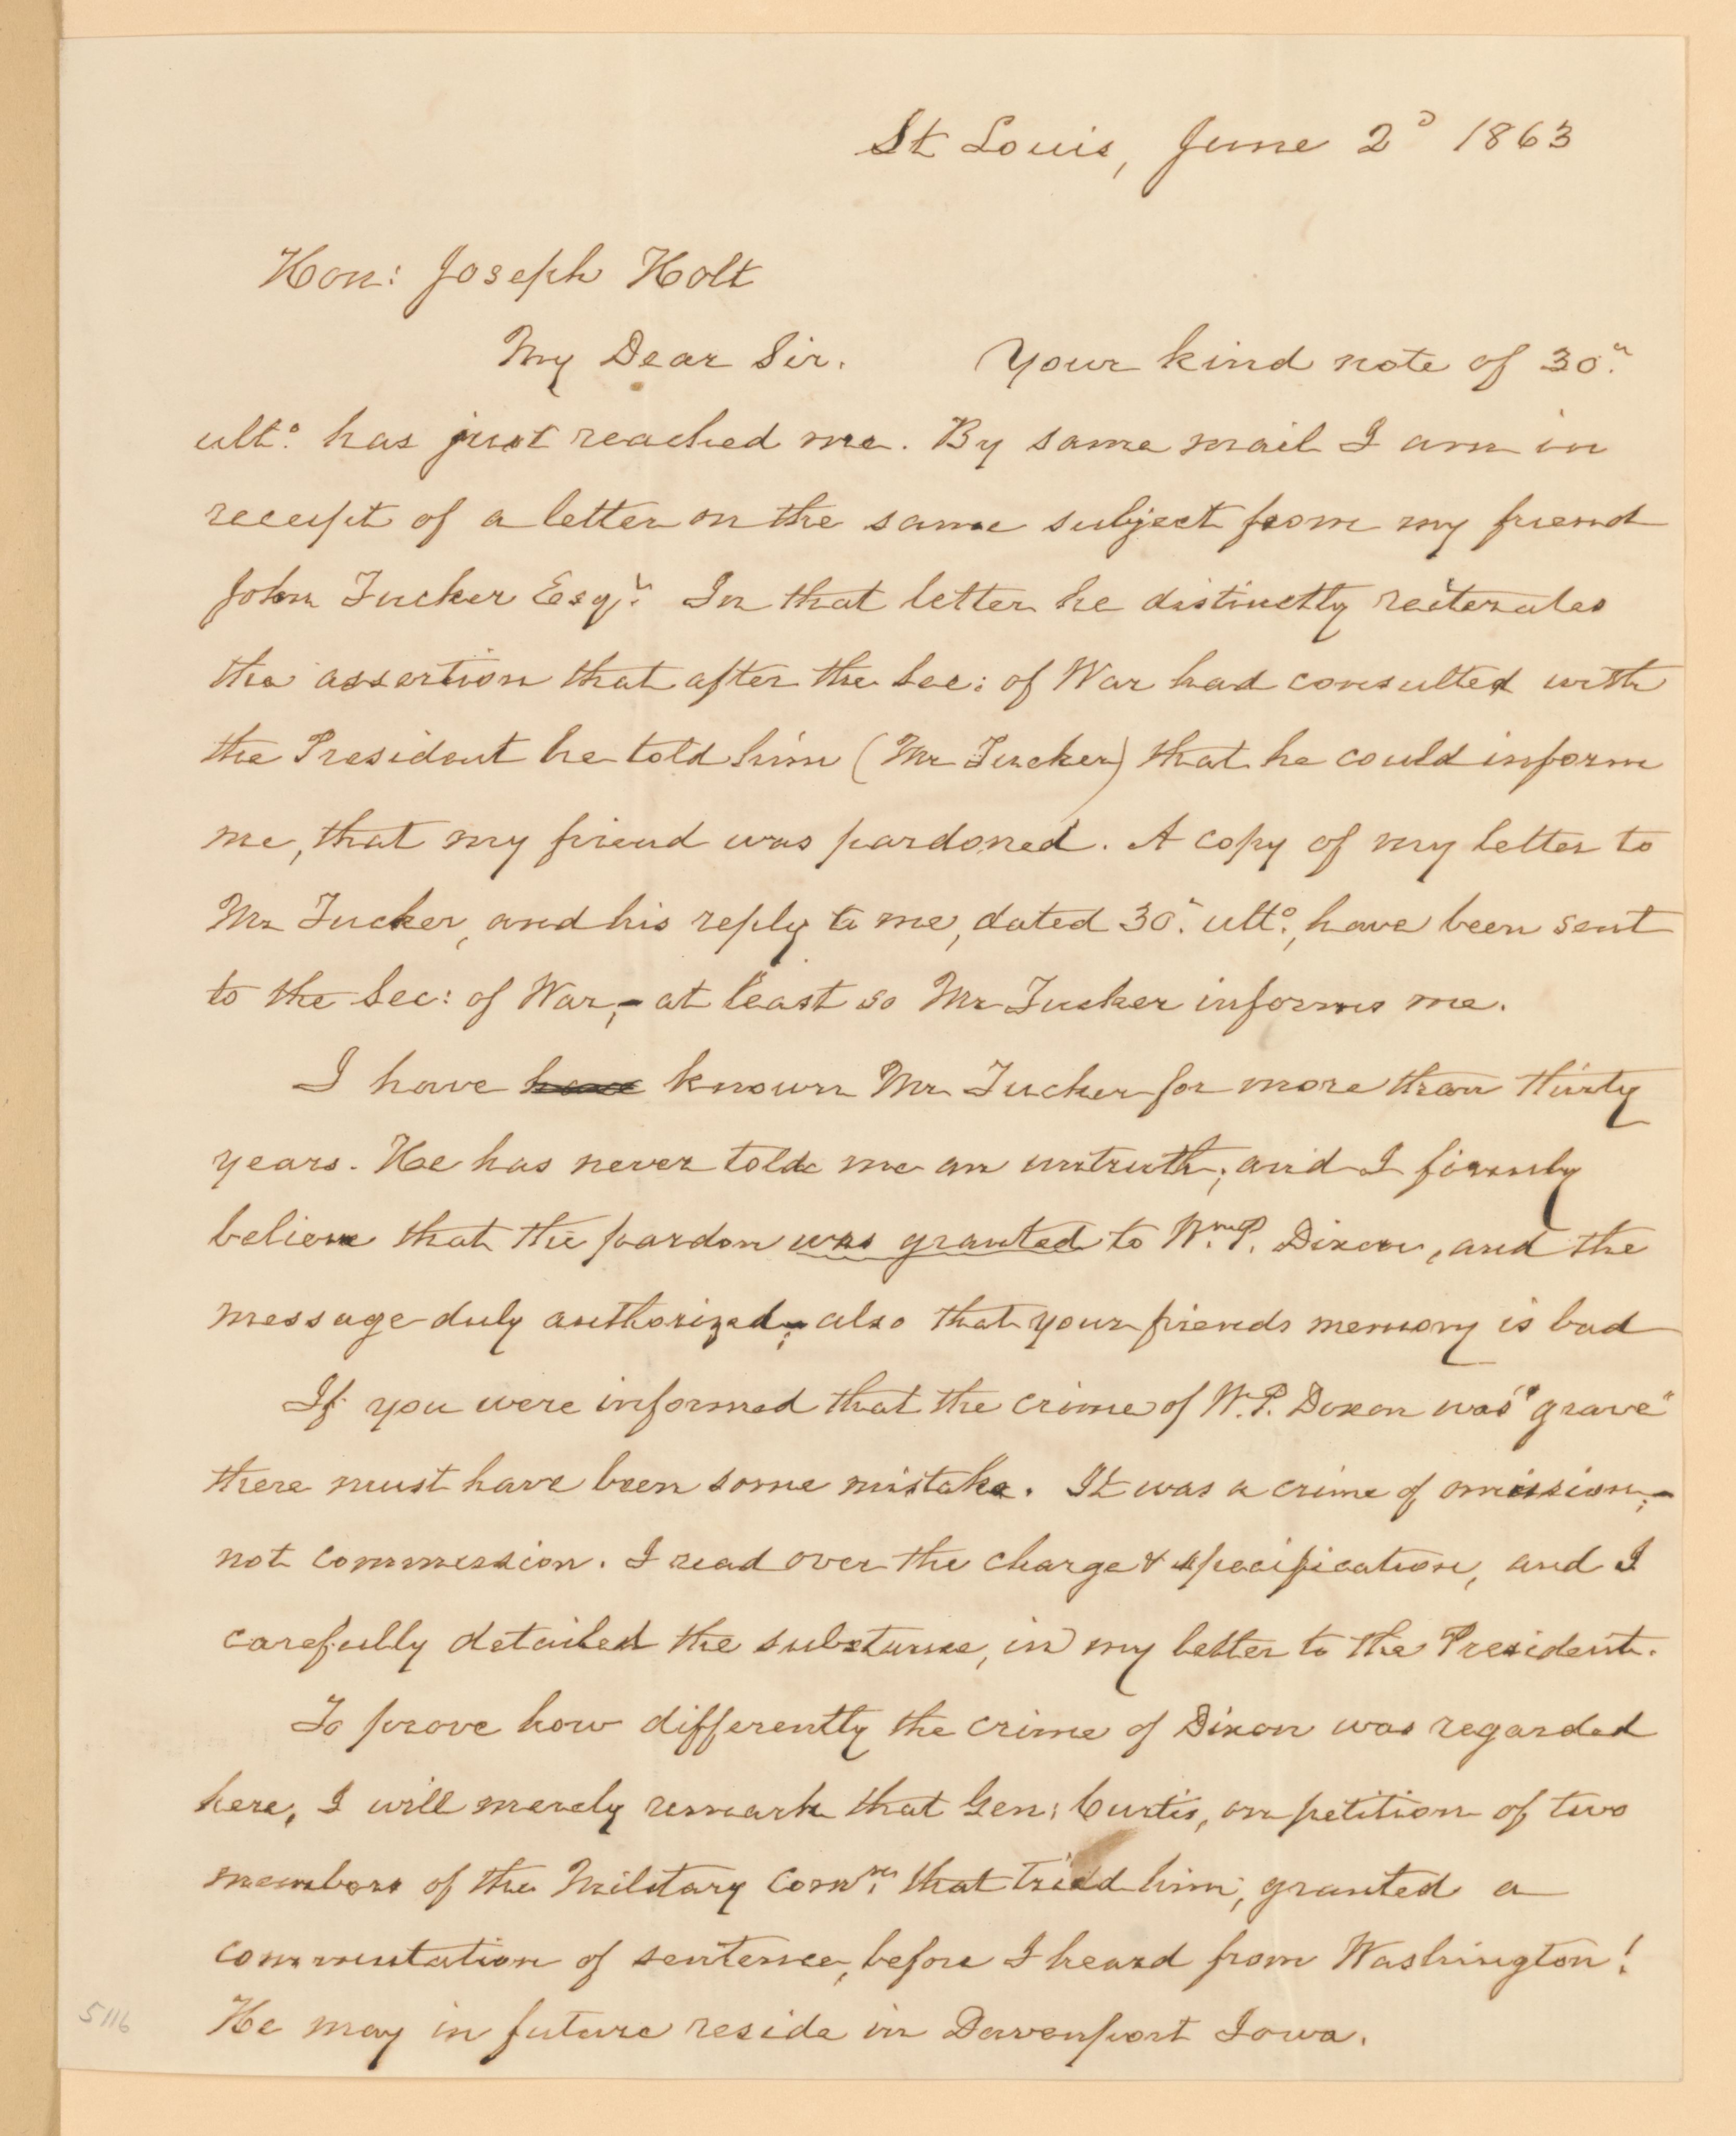 St Louis, June 2d 1863
Hon: Joseph Holt
My Dear Sir. Your kind note of 30"
ulto. has just reached me. By same mail I am in
receipt of a letter on the same subject from my friend
John Tucker Esqr. In that letter he distinctly reiterates
the assertion that after the Sec: of War had consulted with
the President he told him (Mr Tucker) that he could inform
me, that my friend was pardoned. A copy of my letter to
Mr Tucker, and his reply to me, dated 30". ulto., have been sent
to the Sec: of War;- at least so Mr Tucker informs me.
I have have known Mr Tucker for more than thirty
years. He has never told me an untruth; and I firmly
believe that the pardon was granted to Wm. P. Dixon, and the
message duly authorized;- also that your friends memory is bad
If you were informed that the crime of W. P. Dixon was "grave"
there must have been some mistake. It was a crime of omission;-
not commission. I read over the charge & specification, and I
carefully detailed the substance, in my letter to the President.
To prove how differently the crime of Dixon was regarded
here, I will merely remark that Gen: Curtis, on petition of two
members of the Military Comn. that tried him, granted a
commutation of sentence, before I heard from Washington!
He may in future reside in Davenport Iowa.
5116